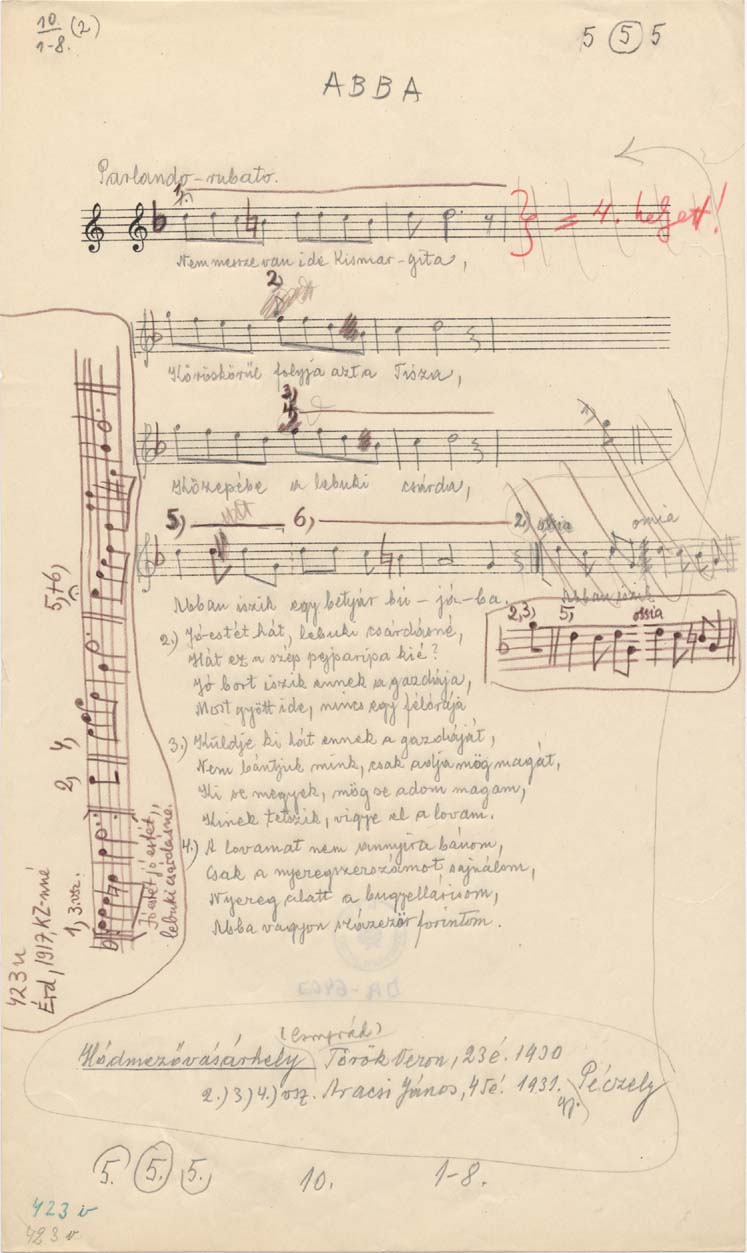 10. (2)
1-8.
5 5 5
ABBA
Parlando-rubato.
1.
= 4. helyett!
Nem messze van ide Kismar-gita,
2,
Köröskörül folyja azt a Tisza,
3,
4,
Közepébe a lebuki csárda,
5, 6, 2) ossia ossia
Abban iszik egy betyár bú-já-ba. Abban iszik
2,3, 5, ossia
2.) Jó estét hát, lebuki csárdásné,
Hát ez a szép pejparipa kié?
Jó bort iszik ennek a gazdája,
Most gyött ide, nincs egy félórája
3.) Küldje ki hóit ennek a gazdáját,
Nem bántjuk mink, csak adja mög magát,
Ki se megyek, mög se adom magam,
Kinek tetszik, vigye el a lovam.
4.) A lovamat nem annyira bánom,
Csak a nyeregszerszámot sajnálom,
Nyereg alatt a bugyellárisom,
Abba vagyon százezör forintom.
5,+6,
2, 4,
1, 3.vsz.
Jó estét, jó estét,
lebuki csárdásné.
423 u
Érd, 1917, KZ-nné
DA-6403
Hódmezővásárhely (Csomorkák) Török Veron, 23é. 1930
2.) 3.) 4.) vsz. Aracsi János, 45é. 1931. Péczely
gy.
5. 5. 5. 10. 1-8.
423 v
423 v